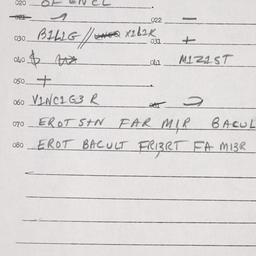 020 OF ENCL
022 —
030 B1L1G // X1L1R
031 +
040 $
041 M1Z1ST
050 +
060 V1NC1G3 R
070 EROT S+N FAR M1R BACUL
080 EROT BACULT FR13RT FA M13R